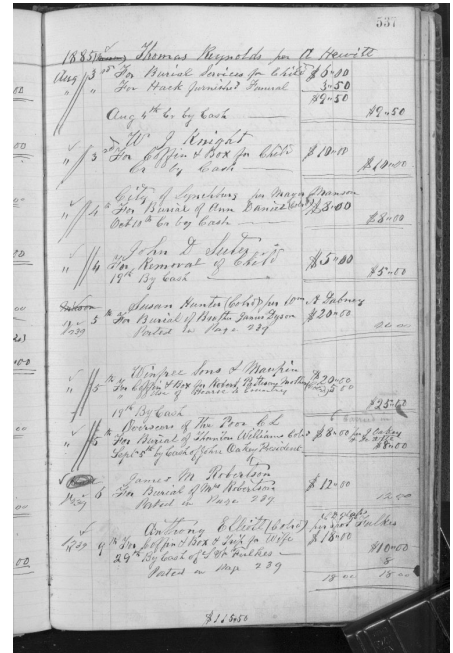 537
1885 Thomas Reynolds per A Hewitt
Aug 3 For Burial Services for Child $6.00
" " For Hack furnished Funeral 3.50
$9.50
Aug 4th Cr by Cash $9.50
W J Knight
" 3 For Coffin & Box for Child $10.00
Cr by Cash $10.00
City of Lynchburg per Mayor Manson
" 4th For Burial of Ann Daniel Cold $8.00
Oct 10th Cr by Cash $8.00
John D Suter
" 4 For Removal of Child $5.00
19th By Cash $5.00
Susan Hunter (Cold) per Wm A Dabney
5th For Burial of Brother James Dyson $20.00
239 Posted on Page 239 20.00
Winfree Sons & Maupin
" 5th For Coffin & Box for Robert $20.00
" Use of Hearse 5.00
19th By Cash $25.00
Overseers of the Poor C L
" 5th For Burial of Thornton Williams Cold $8.00 per J Oakey
Sept 5th by Cash of John Oakey President $8.00
James M Robertson
6 For Burial of Mrs Robertson $12.00
239 Posted on Page 239 12.00
Anthony Elliott (Cold) per Fulkes
239 9th For Coffin & Box & Trip for Wife $18.00
29th By Cash of Fulkes $10.00
8
Posted on Page 239
18 00 18 00
$115.50